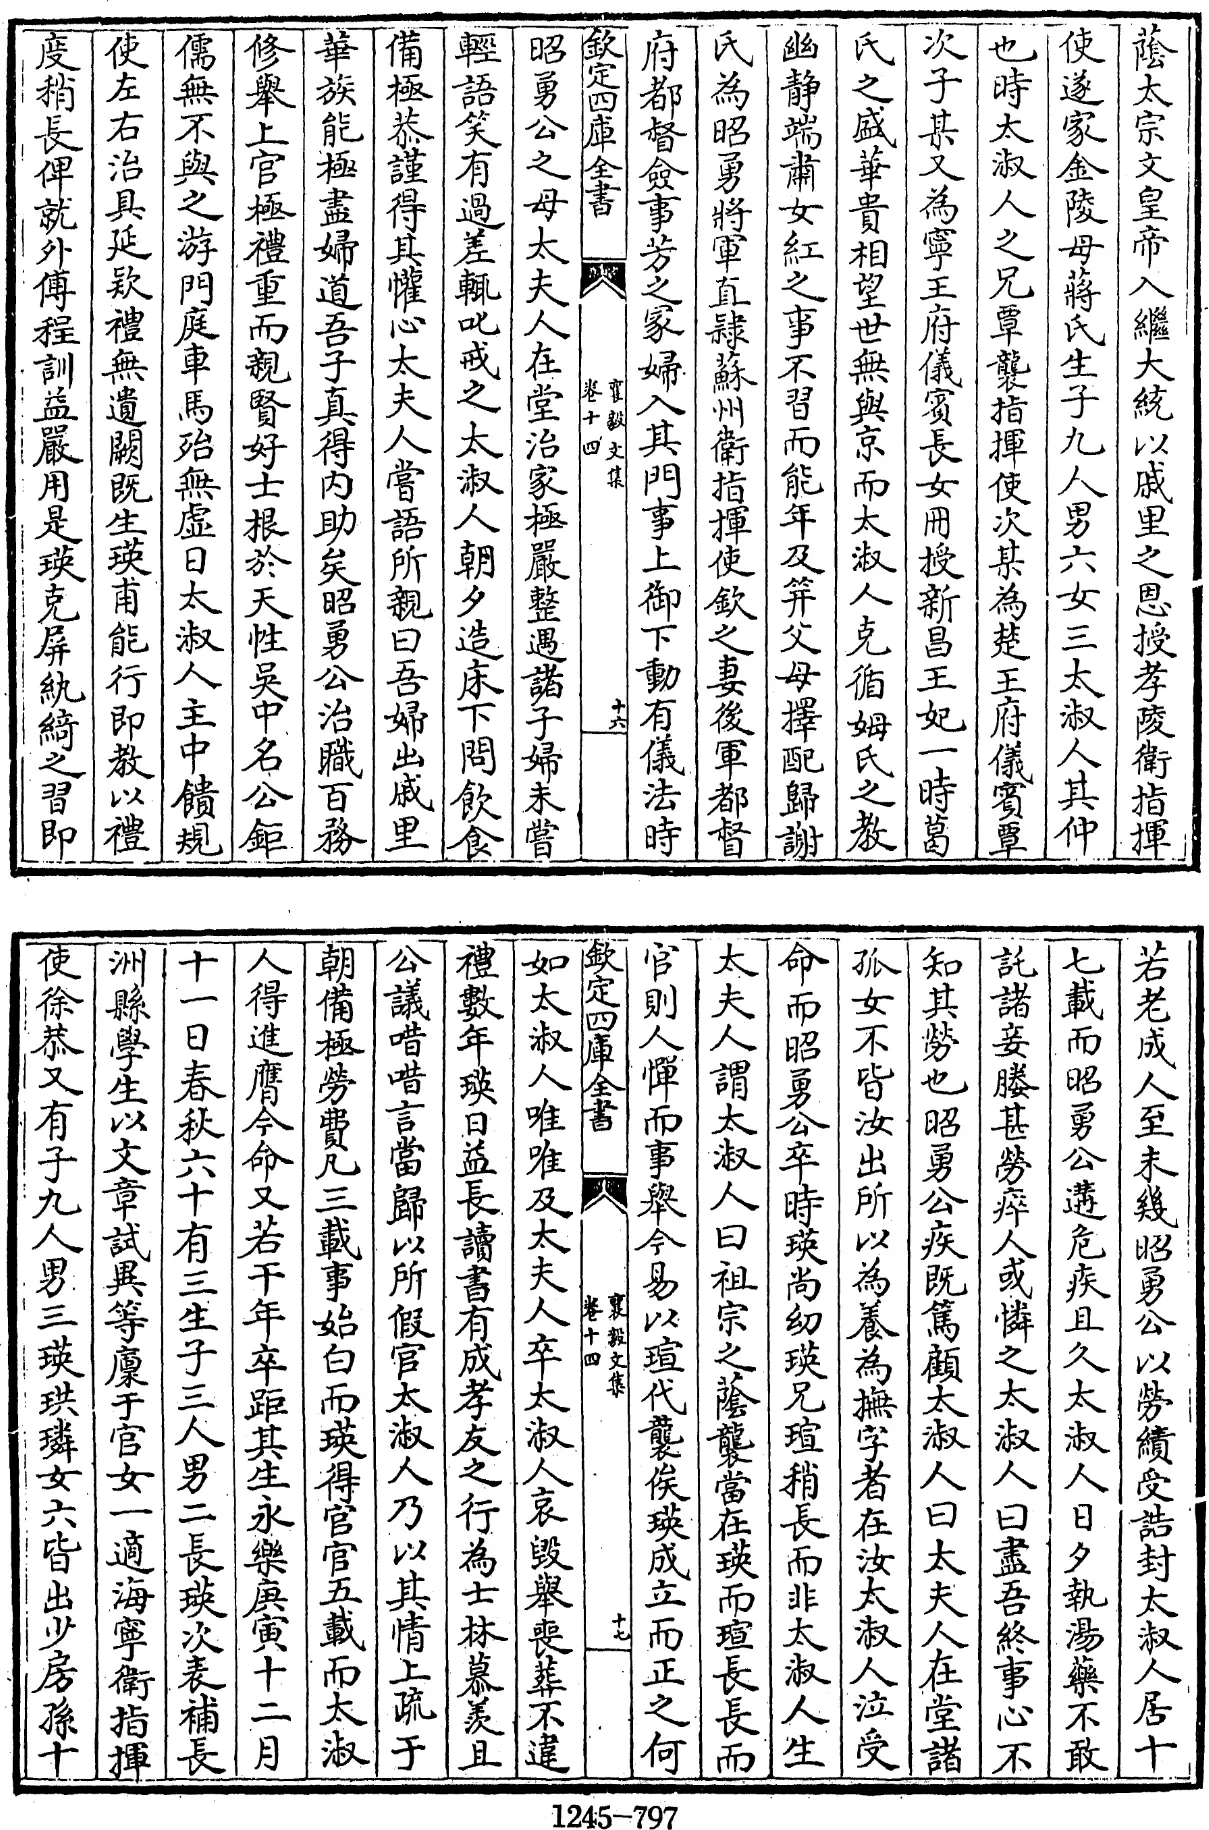 蔭太宗文皇帝入繼大統以戚里之恩授孝陵衛指揮
使遂家金陵母蔣氏生子九人男六女三太淑人其仲
也時太淑人之兄覃襲指揮使次某為楚王府儀賓覃
次子某又為寧王府儀賓長女冊授新昌王妃一時葛
氏之盛華貴相望世無與京而太淑人克循姆氏之教
幽静端肅女紅之事不習而能年及笄父母擇配歸謝
氏為昭勇將軍直隸蘇州衛指揮使欽之妻後軍都督
府都督僉事芳之冢婦入其門事上御下動有儀法時
欽定四庫全書
襄毅文集
卷十四
十六
昭勇公之母太夫人在堂治家極嚴整遇諸子婦未嘗
輕語笑有過差輒叱戒之太淑人朝夕造床下問飲食
備極恭謹得其懽心太夫人嘗語所親曰吾婦出戚里
華族能極盡婦道吾子真得内助矣昭勇公治職百務
修舉上官極禮重而親賢好士根於天性吳中名公鉅
儒無不與之游門庭車馬殆無虚日太淑人主中饋規
使左右治具延欵禮無遺闕既生瑛甫能行即教以禮
度稍長俾就外傅程訓益嚴用是瑛克屏紈綺之習即
若老成人至未幾昭勇公以勞績受誥封太淑人居十
七載而昭勇公遘危疾且久太淑人日夕執湯藥不敢
託諸妾媵甚勞瘁人或憐之太淑人曰盡吾終事心不
知其勞也昭勇公疾既篤顧太淑人曰太夫人在堂諸
孤女不皆汝出所以為養為撫字者在汝太淑人泣受
命而昭勇公卒時瑛尚幼瑛兄瑄稍長而非太淑人生
太夫人謂太淑人曰祖宗之蔭襲當在瑛而瑄長長而
官則人憚而事舉今易以瑄代襲俟瑛成立而正之何
欽定四庫全書
襄毅文集
卷十四
十七
如太淑人唯唯及太夫人卒太淑人哀毀舉喪葬不違
禮數年瑛日益長讀書有成孝友之行為士林慕羡且
公議唶唶言當歸以所假官太淑人乃以其情上疏于
朝備極勞費凡三載事始白而瑛得官官五載而太淑
人得進膺今命又若干年卒距其生永樂庚寅十二月
十一日春秋六十有三生子三人男二長瑛次表補長
洲縣學生以文章試異等廩于官女一適海寧衛指揮
使徐恭又有子九人男三瑛珙璘女六皆出少房孫十
1245-797